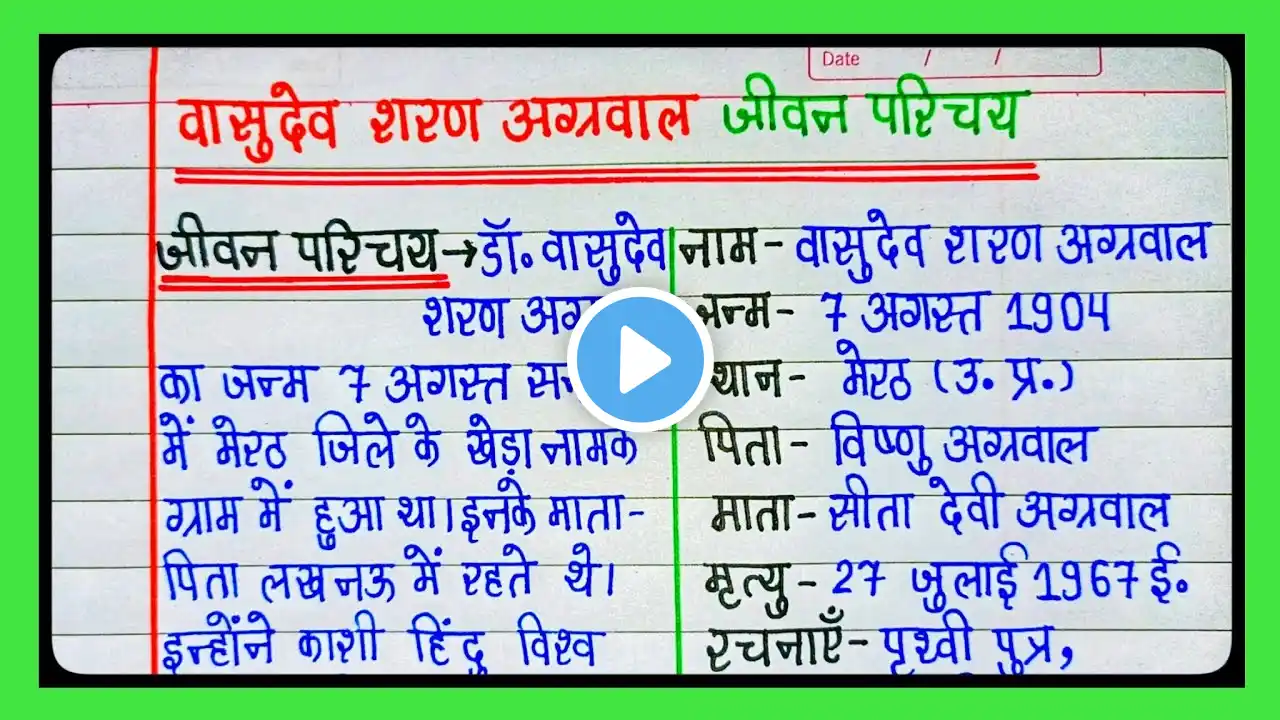 Date / /
वासुदेव शरण अग्रवाल जीवन परिचय
जीवन परिचय → डॉ. वासुदेव
शरण
का जन्म 7 अगस्त
में मेरठ जिले के खेड़ा नामक
ग्राम में हुआ था। इनके माता-
पिता लखनऊ में रहते थे।
इन्होंने काशी हिंदु विश्व
नाम - वासुदेव शरण अग्रवाल
जन्म - 7 अगस्त 1904
मेरठ (उ. प्र.)
पिता - विष्णु अग्रवाल
माता - सीता देवी अग्रवाल
मृत्यु - 27 जुलाई 1967 ई.
रचनाएँ - पृथ्वी पुत्र,